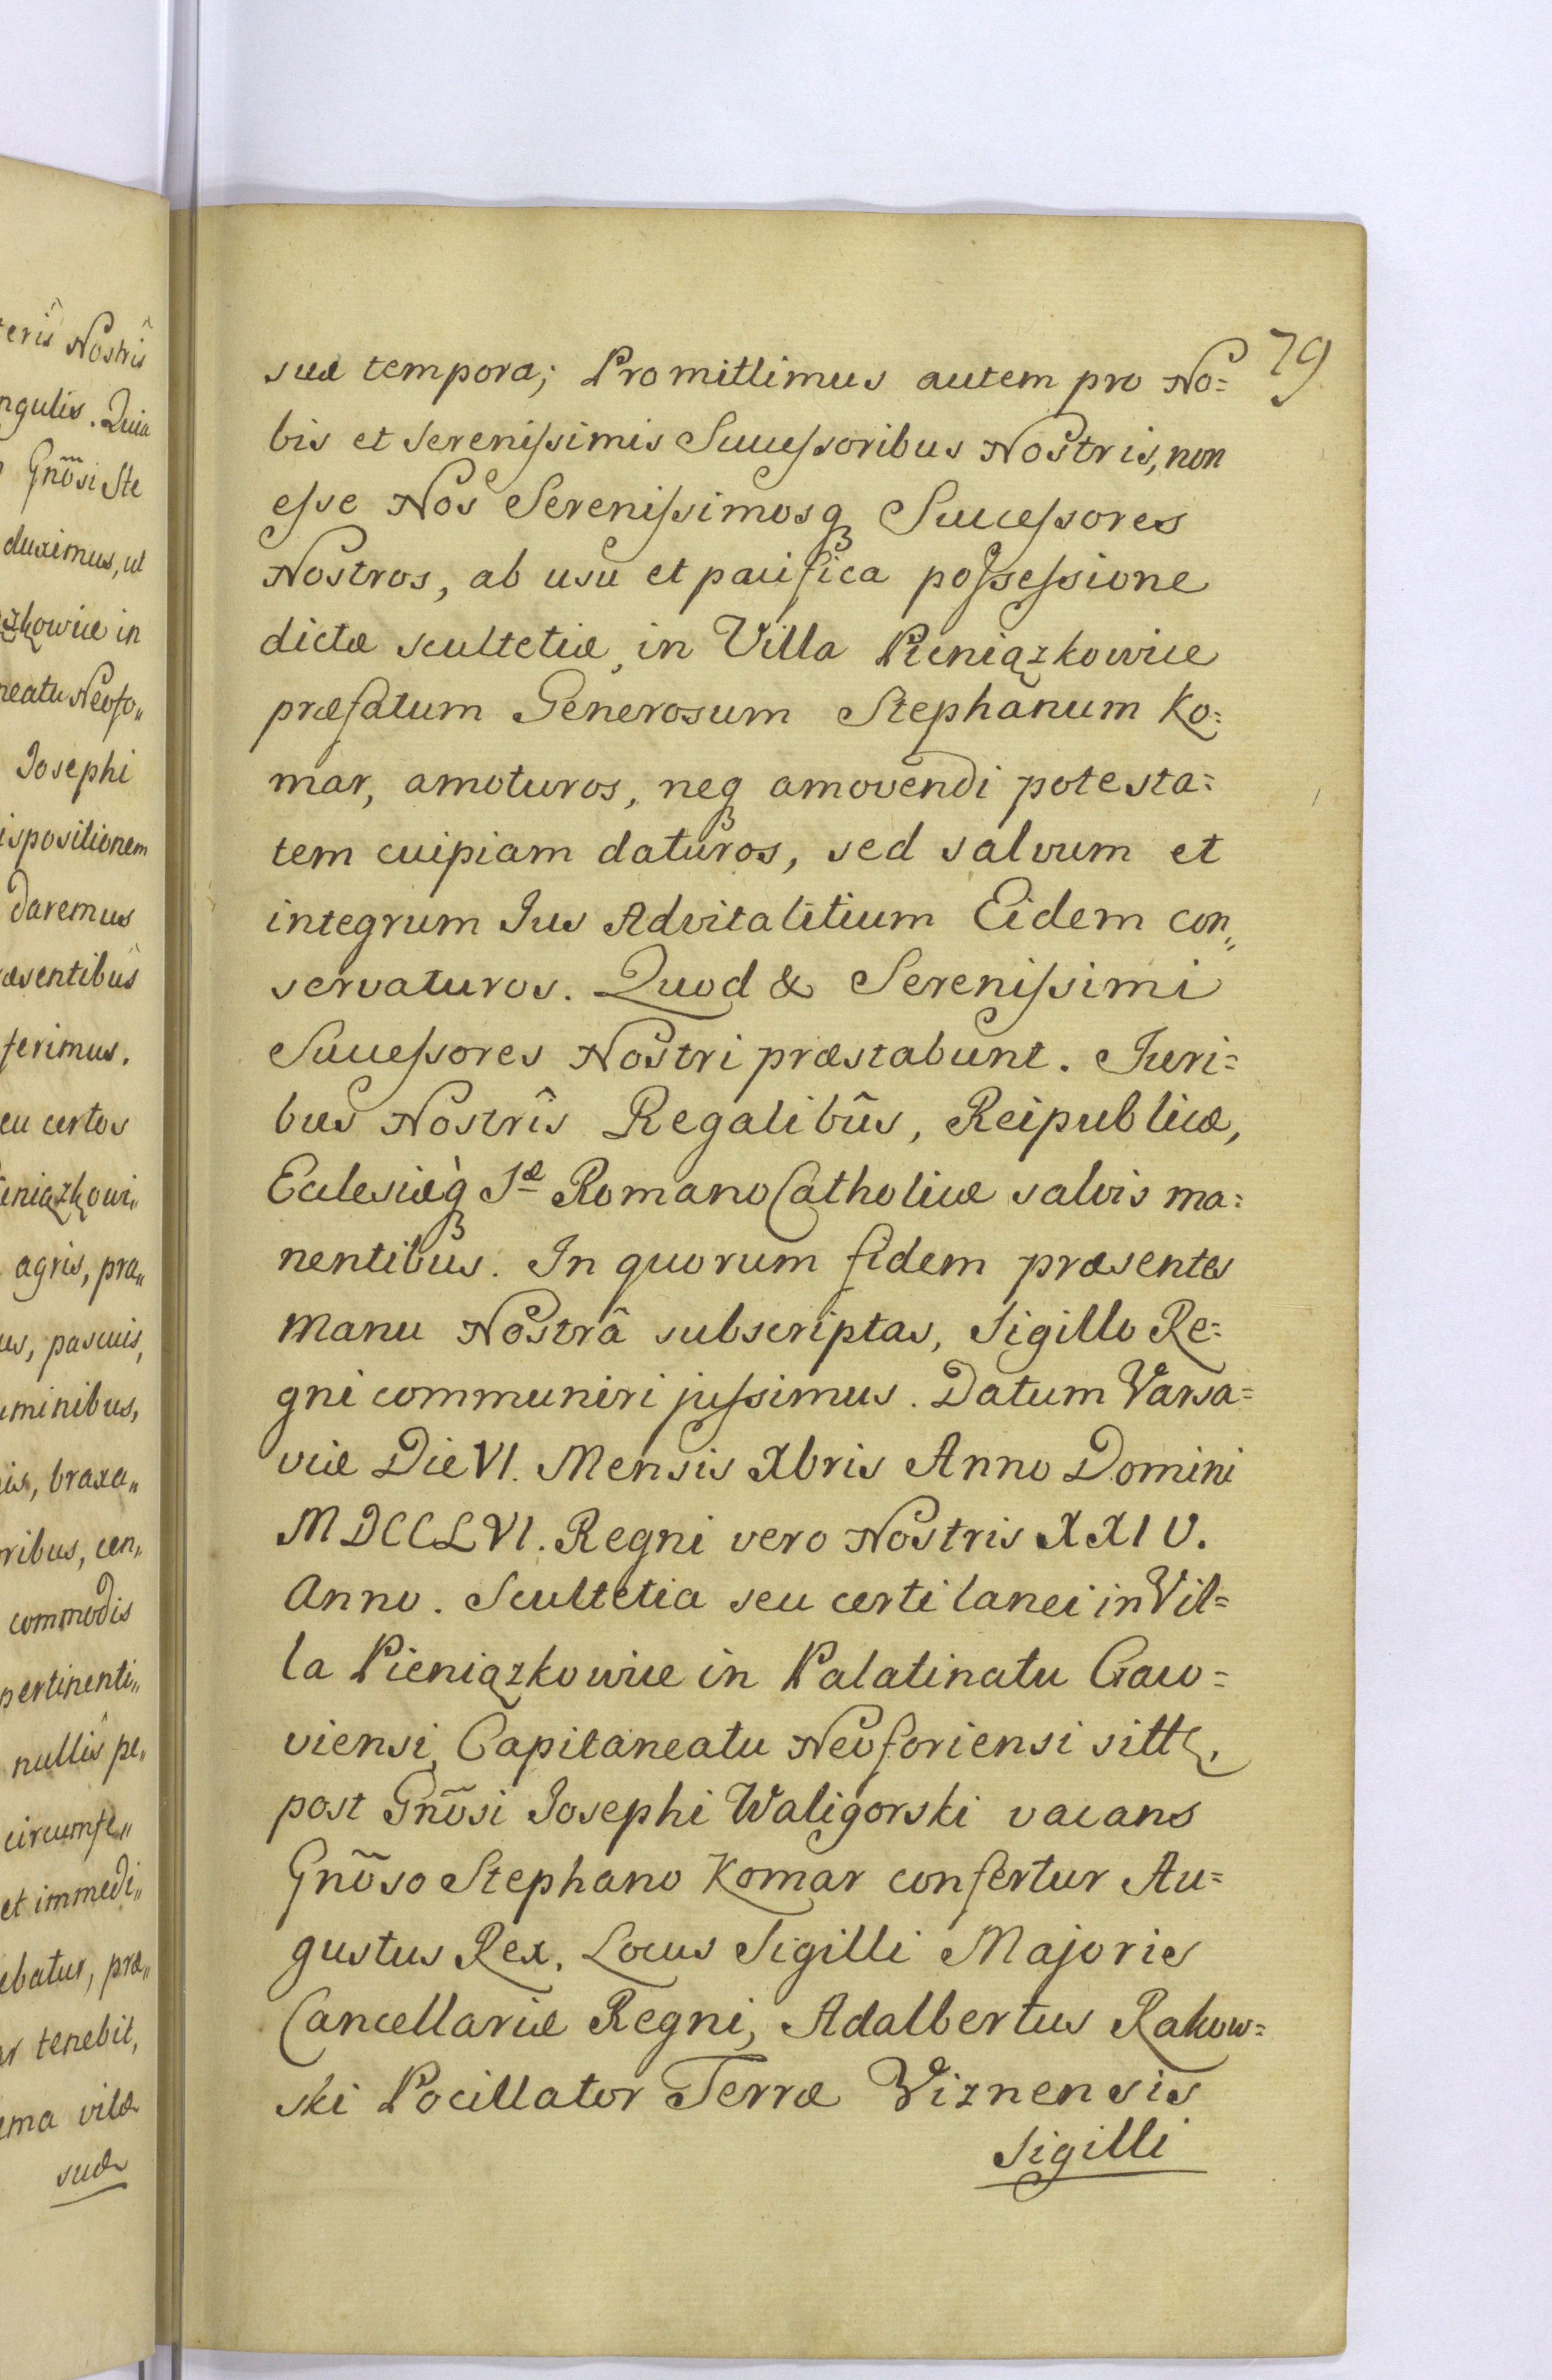 suæ tempora; Promittimus autem pro No=
79
bis et Serenissimis Successoribus Nostris, non
esse Nos Serenissimosq Successores
Nostros, ab usu et pacifica possessione
dictæ scultetiæ in Villa Pieniązkowice
præfatum Generosum Stephanum Ko=
mar, amoturos, neq amovendi potesta=
tem cuipiam daturos, sed salvum et
integrum Jus Advitalitium Eidem con„
servaturos. Quod & Serenissimi
Successores Nostri præstabunt. Juri=
bus Nostrîs Regalibûs, Reipublicæ,
Ecclesiæq̀ Sæ Romano Catholicæ salvis ma=
nentibus. In quorum fidem præsentes
Manu Nostrâ subscriptas, Sigillo Re=
gni communiri jussimus. Datum Varsa=
viæ Die VI. Mensis Xbris Anno Domini
MDCCLVI. Regni vero Nostris XXIV.
Anno. Scultetia seu certi lanei in Vil=
la Pieniązkowice in Palatinatu Craco=
viensi, Capitaneatu Neoforiensi sitt,
post Gnõsi Josephi Waligorski vacans
Gnõso Stephano Komar confertur Au=
gustus Rex. Locus Sigilli Majoris
Cancellariæ Regni, Adalbertus Rakow=
ski Pocillator Terræ Viznensis
Sigilli
terîs Nostrîs
ngulis. Quia
Gnõsi Ste
duximus, ut
zkowice in
neatu Neofo„
Josephi
ispositionem
Daremus
æsentibûs
ferimus.
eu certos
ieniązkowi„
agris, pra„
us, pascuis,
uminibus,
is, braxa„
oribus, cen„
commodis
pertinenti„
nullîs pe„
circumfe„
et immedi„
ebatur, præ„
ar tenebit,
ema vitæ
suæ